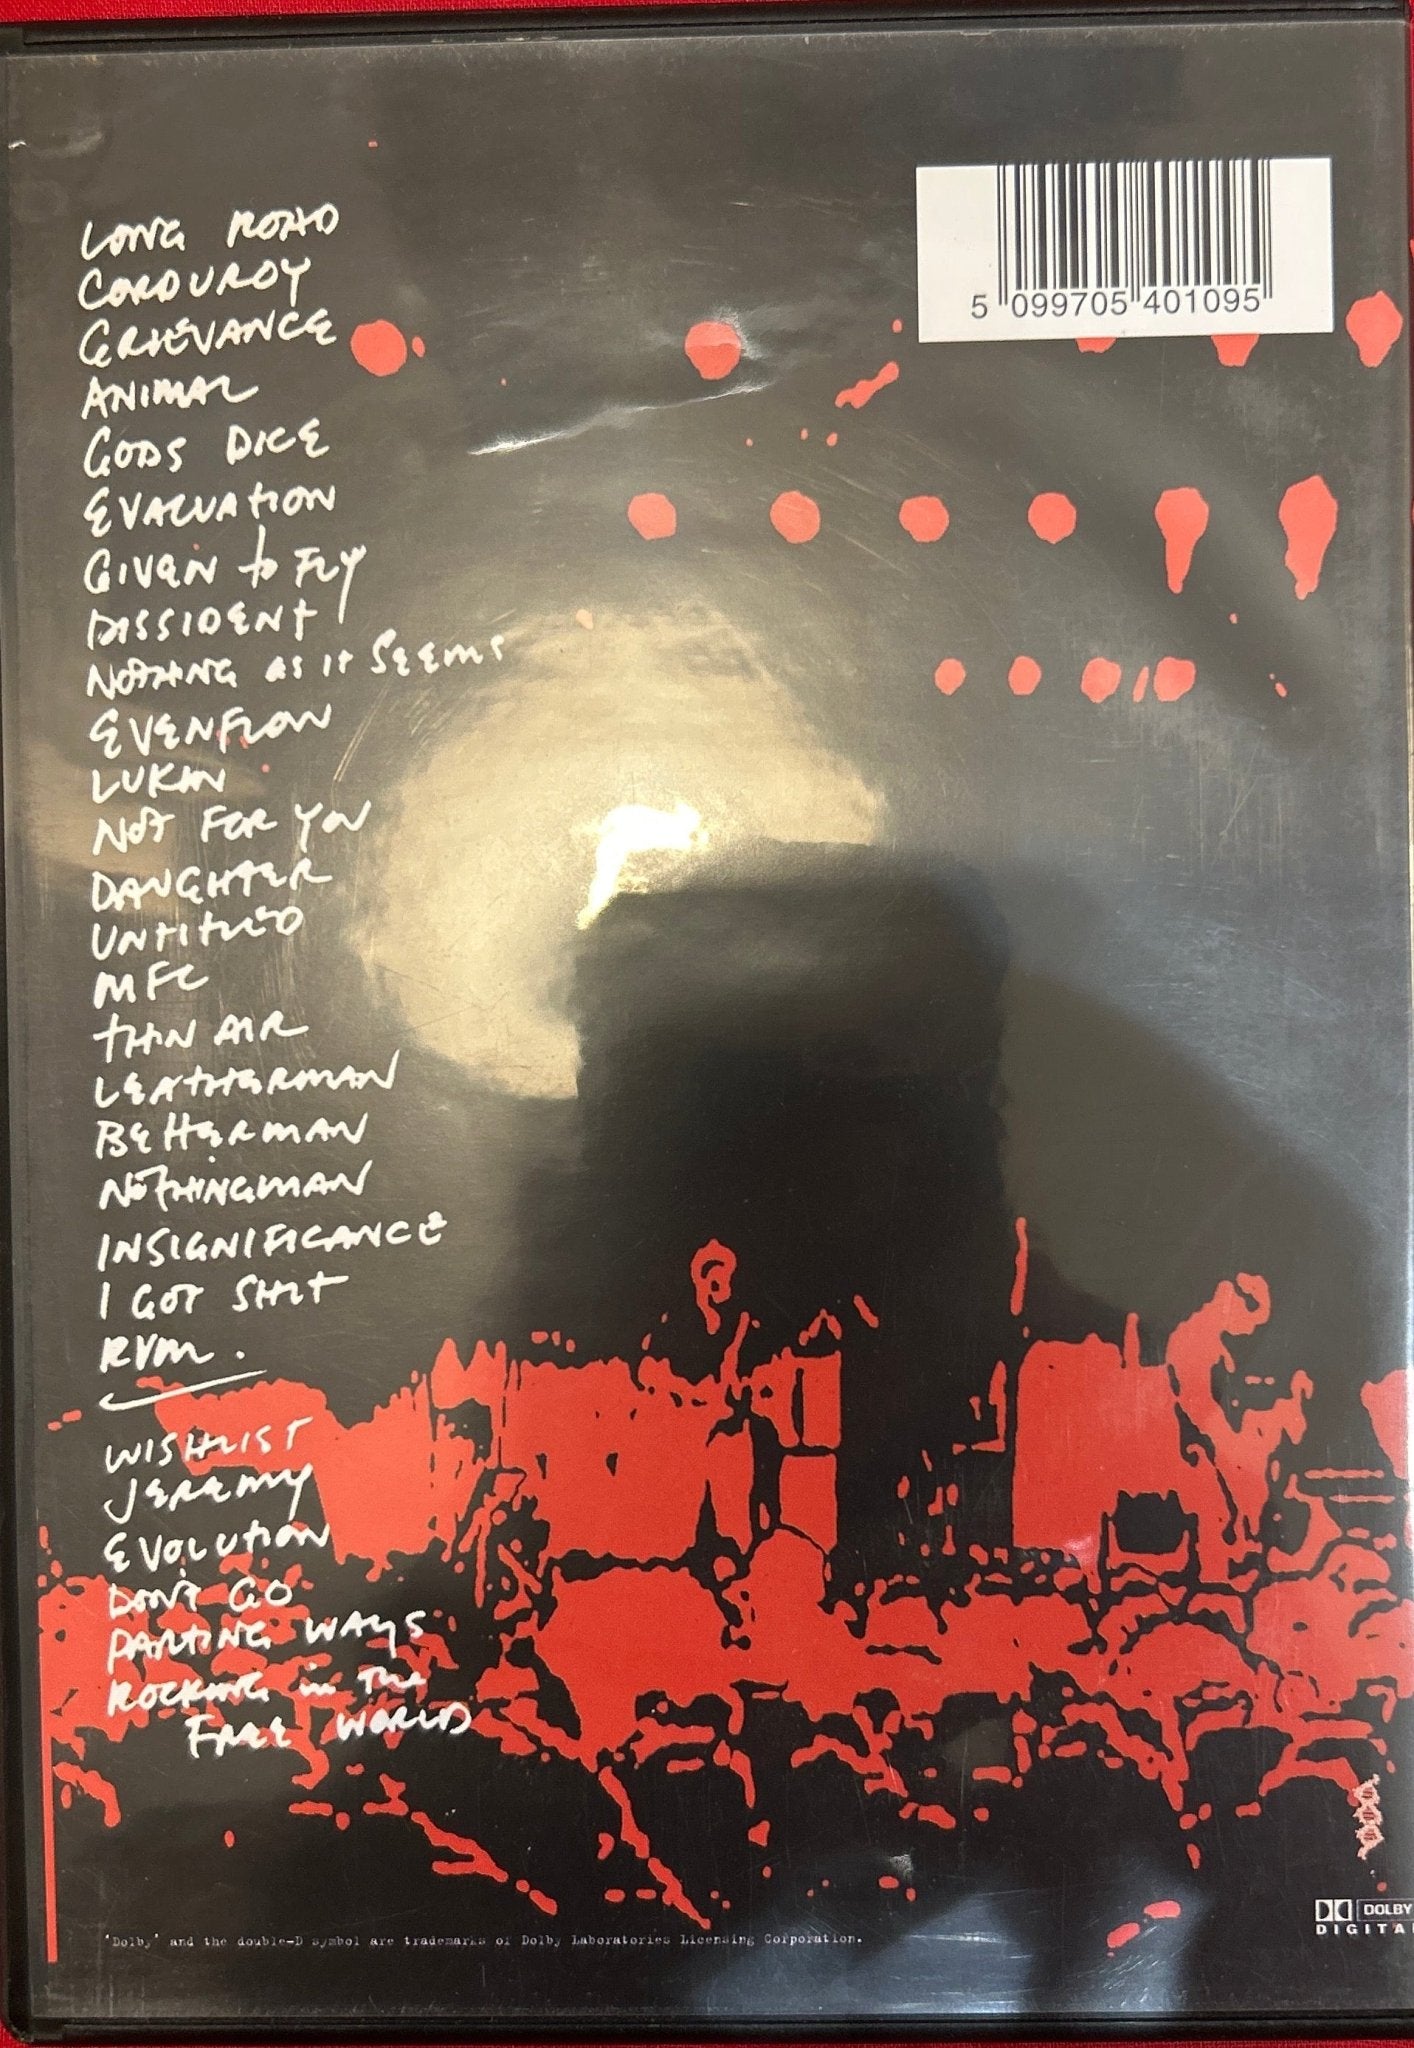 LONG ROAD
CORDUROY
GRIEVANCE
ANIMAL
GODS DICE
EVACUATION
GIVEN to FLY
DISSIDENT
NOTHING AS IT SEEMS
EVENFLOW
LUKIN
NOT FOR YOU
DAUGHTER
UNTITLED
MFC
THIN AIR
LEATHERMAN
BETTERMAN
NOTHINGMAN
INSIGNIFICANCE
I GOT SHIT
RVM.
WISHLIST
JEREMY
EVOLUTION
DON'T GO
PARTING WAYS
ROCKING in The
FREE WORLD
5 099705 401095
'Dolby' and the double-D symbol are trademarks of Dolby Laboratories Licensing Corporation.
DOLBY
DIGITA